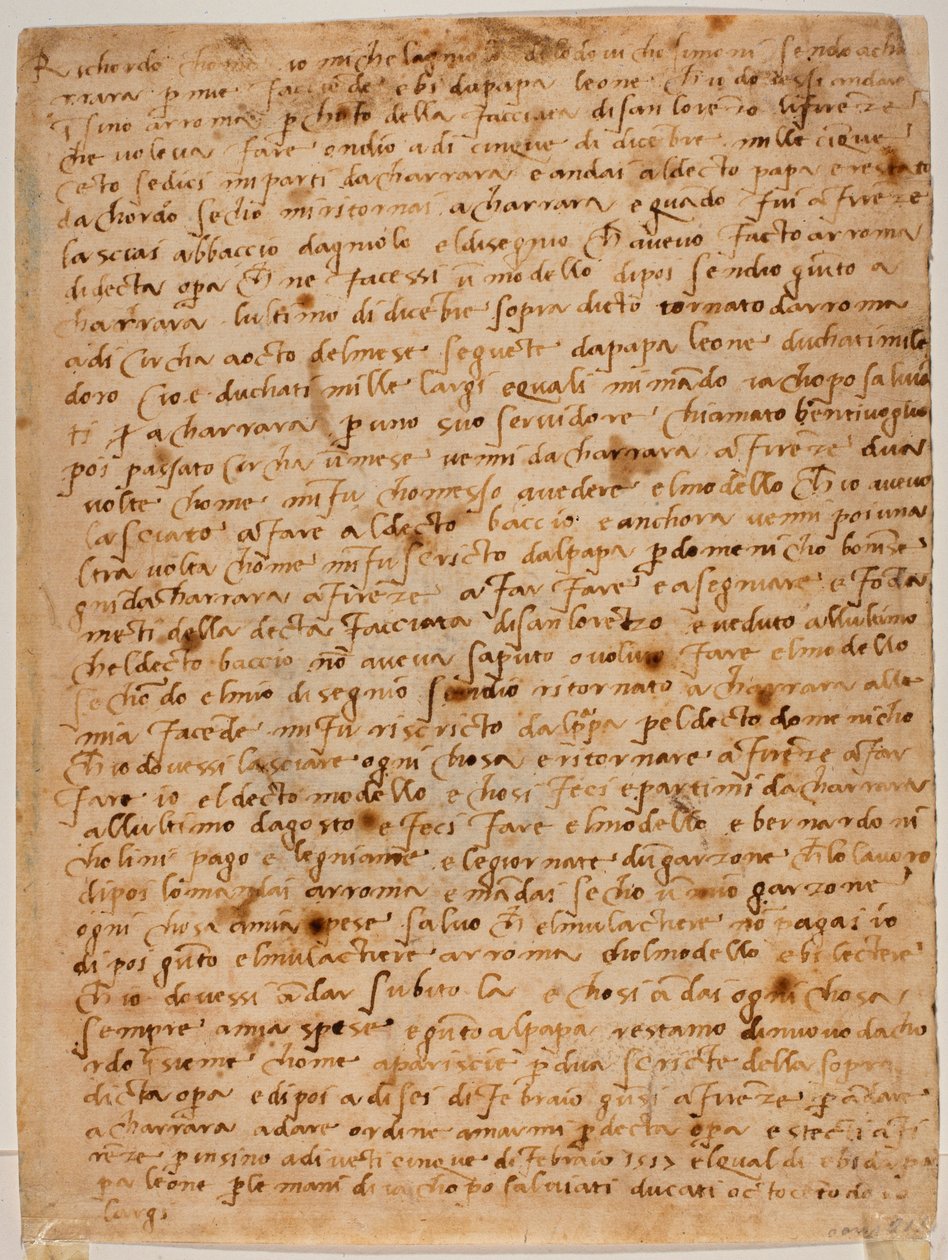 Richordo chome io michelagniolo di lodovicho simoni sendo a cha
rrara p mie faccede ebi da papa leone ch io dovessi andare
ĩsino arroma p chõto della facciata di san lorẽzo di firẽze
che voleva fare ondio a di cinque di dicẽbre mille cĩque
cẽto sedici mi parti da charrara e andai al decto papa e restato
dachordo secho mi ritornai a charrara e quãdo fui a firẽze
lasciai a bbaccio dagniolo el disegnio ch avevo facto a rroma
di decta opa ch ne facessi ũ modello dipoi sendio giũto a
charrara lultimo di dicẽbre sopra dicto tornato da rroma
a di circha a octo del mese seguẽte da papa leone duchati mile
doro cioe duchati mille largi e quali mi mãdo iachopo salvia
ti p a charrara p uno suo servidore chiamato bentivoglio
poi passato circha ũ mese venni da charrara a firẽze dua
volte chome mi fu chomesso a vedere el modello ch io avevo
lasciato a fare al decto baccio e anchora venni poi una
ltra volta chome mi fu scricto dal papa p domenicho bonise
gni da charrara a firẽze a far fare e a segniare e fõda
mẽti della decta facciata di san lorẽzo e veduto allultimo
chel decto baccio nõ aveva saputo o voluto fare el modello
sechõdo el mio disegnio sendio ritornato a charrara alle
mia facẽde mi fu riscricto dal ppa pel decto domenicho
ch io dovessi lasciare ogni chosa e ritornare a firẽze a far
fare io el decto modello e chosi feci e partimi da charrara
allultimo dagosto e feci fare el modello e bernardo ni
cholini pago e legniami e le giornate dũ garzone ch lo lavoro
dipoi lo mandai a rroma e mãdai secho ũ mio garzone
ogni chosa a mia spese salvo ch el mulactiere nõ pagai io
dipoi giũto el mulactiere a rroma chol modello ebi lectere
ch io dovessi ãdar subito la e chosi ãdai ogni chosa
sempre a mia spese e giũto al papa restamo di nuovo dacho
rdo ĩsieme chome apariscie p dua scricte della sopra
dicta opa e dipoi a di sei di febraio giũsi a firẽze p ãdare
a charrara a dare ordine a marmi p decta opa e stecti a fi
rẽze p insino a di vẽti cinque di febraio 1517 el qual di ebi da pa
pa leone p le mani di iachopo salviati ducati octocẽto doro
largi